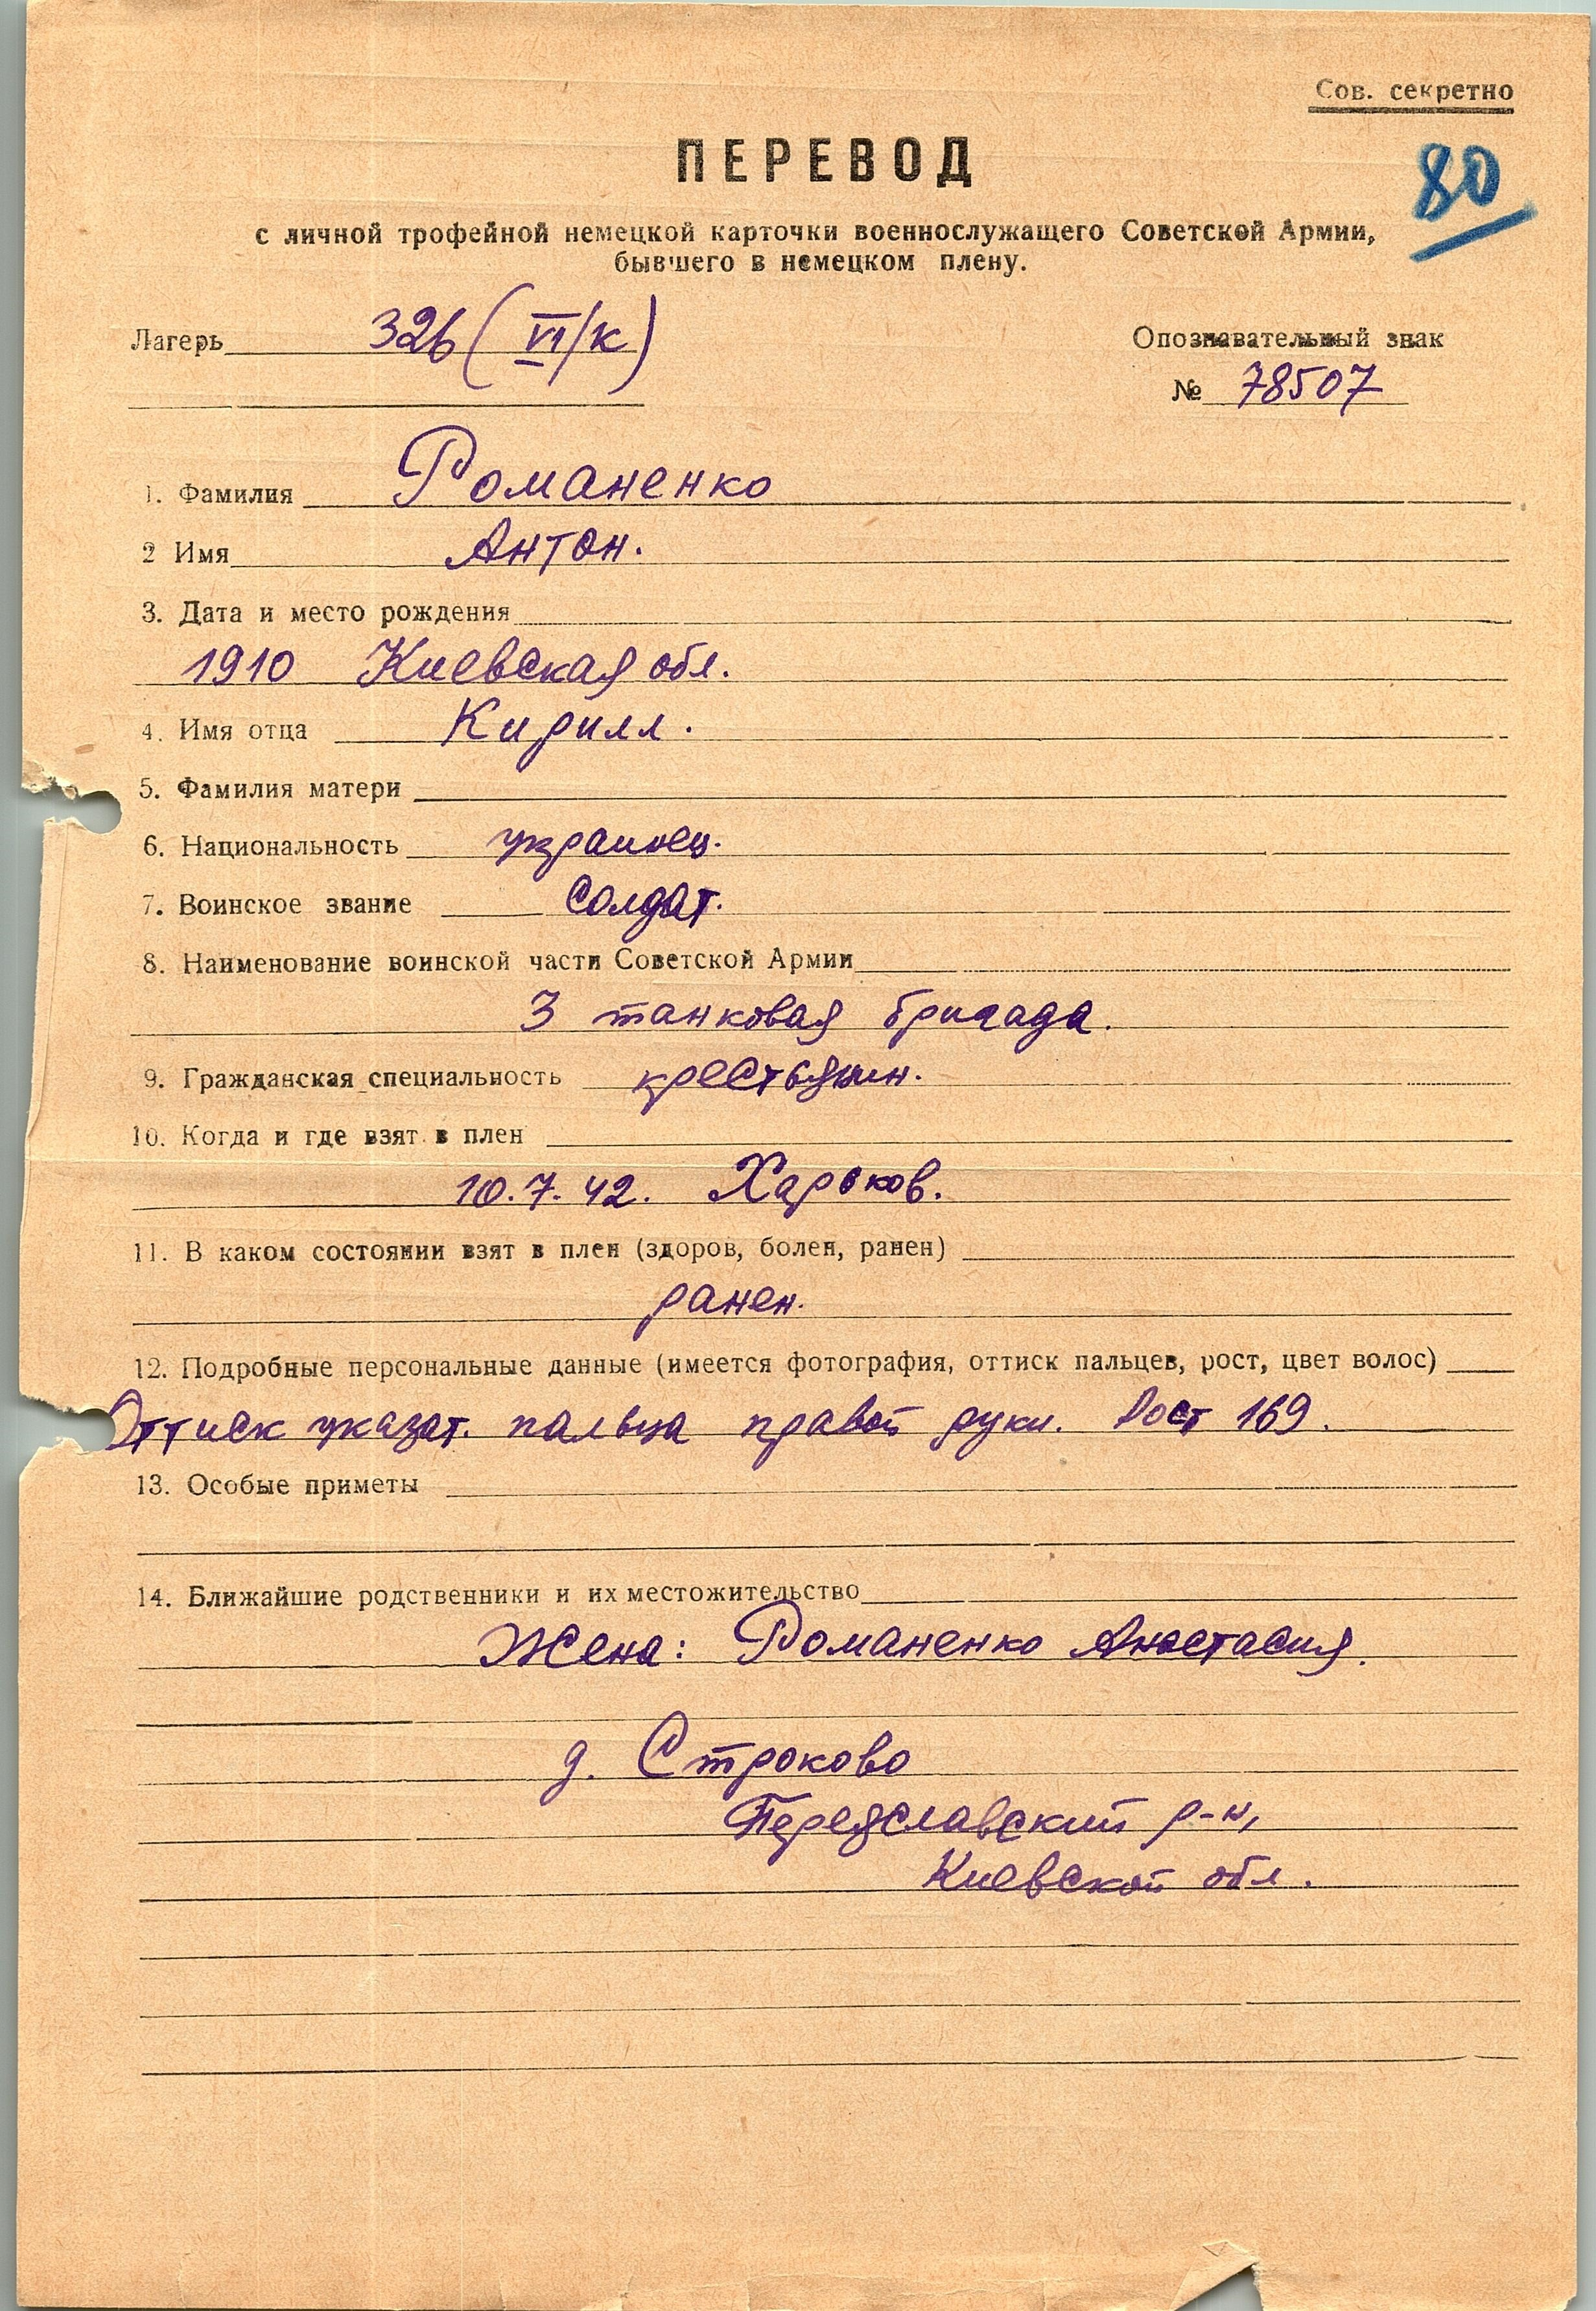 Сов. секретно
ПЕРЕВОД
80
с личной трофейной немецкой карточки военнослужащего Советской Армии,
бывшего в немецком плену.
Лагерь 326 (VI/к)
Опознавательный знак
№ 78507
1. Фамилия Романенко
2 Имя Антон.
3. Дата и место рождения
1910 Киевская обл.
4. Имя отца Кирилл.
5. Фамилия матери
6. Национальность украинец.
7. Воинское звание солдат.
8. Наименование воинской части Советской Армии
3 танковая бригада.
9. Гражданская специальность крестьянин.
10. Когда и где взят в плен
10.7.42. Харьков.
11. В каком состоянии взят в плен (здоров, болен, ранен)
ранен.
12. Подробные персональные данные (имеется фотография, оттиск пальцев, рост, цвет волос)
Оттиск указат. пальца правой руки. Рост 169.
13. Особые приметы
14. Ближайшие родственники и их местожительство
Жена: Романенко Анастасия.
д. Строково
Переяславский р-н,
Киевской обл.